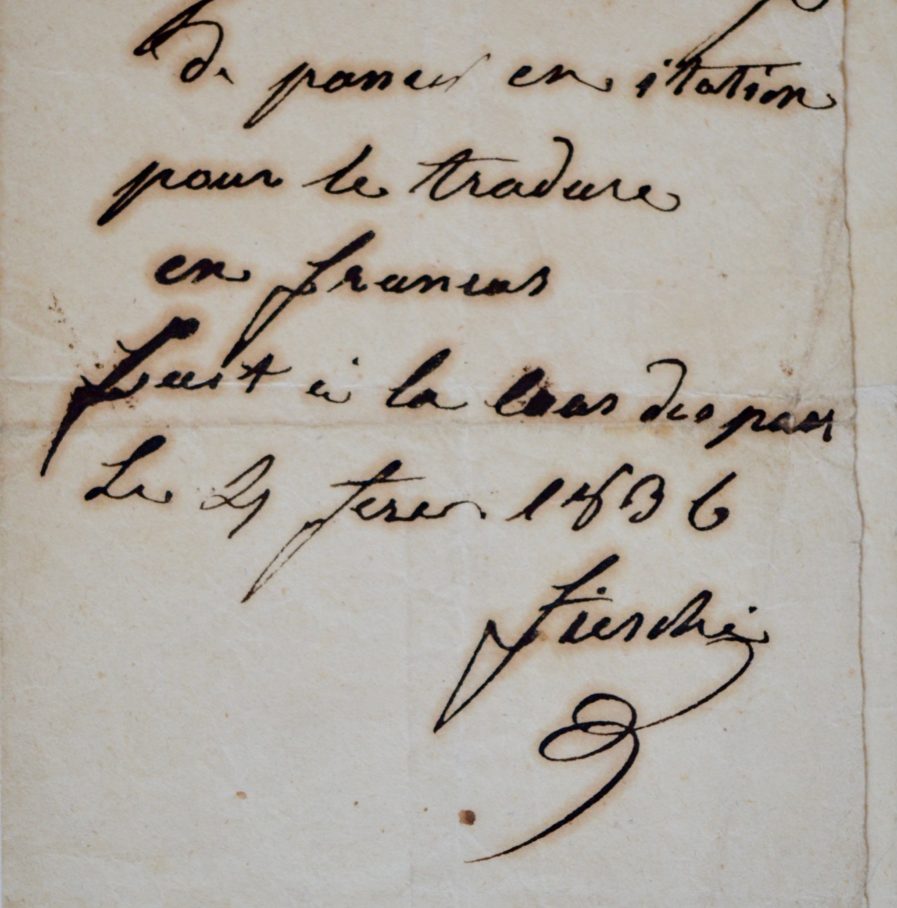 de panser en itation
pour le tradure
en francas
fait à la cour des pars
Le 4 fevr 1836
fieschi